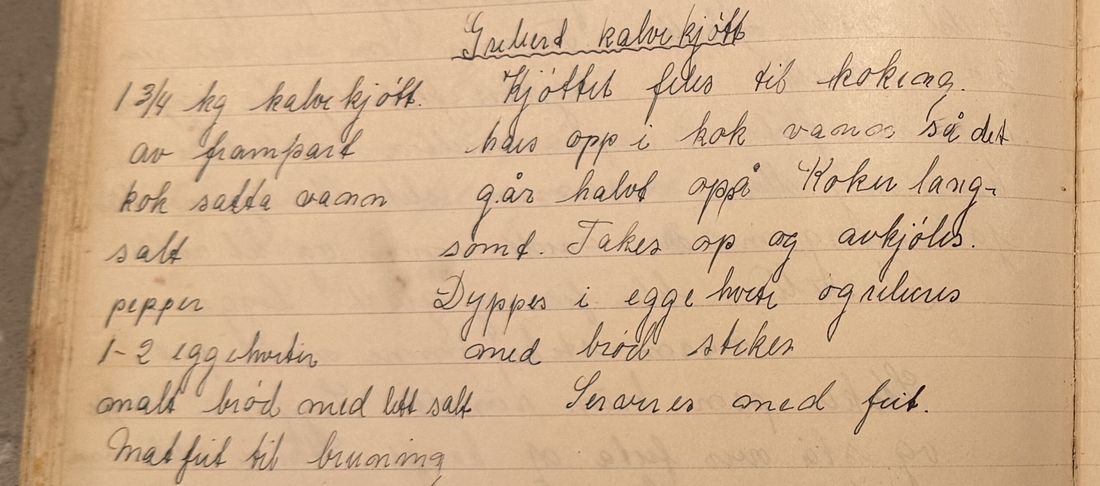 Grilerd kalvekjøtt
1 3/4 kg kalvekjøtt.
av frampart
kok satta vann
salt
pepper
1-2 eggehviter
malt brød med litt salt
Matfett til bruning
Kjøttet files til koking.
haes opp i kok vann så det
går halvt oppå Koker lang-
somt. Takes op og avkjøles.
Dyppes i eggehvite og
med brød stekes
Serveres med fett.